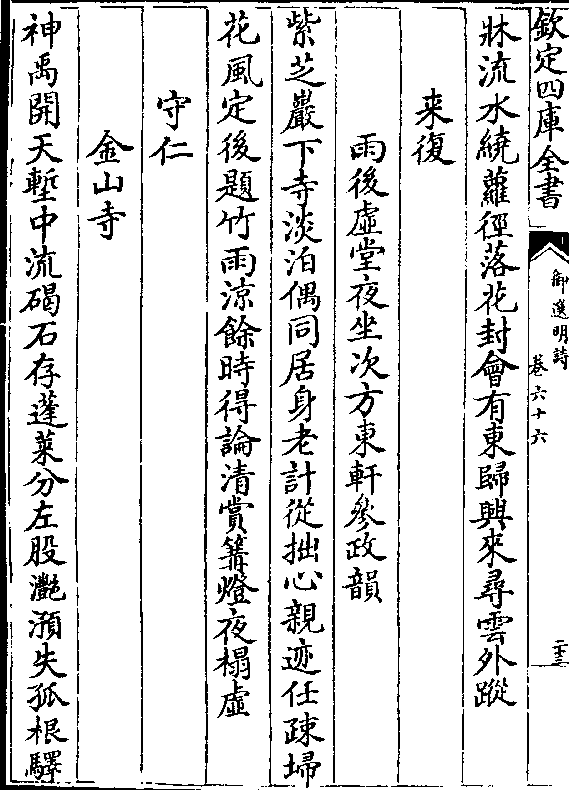 欽定四庫全書
御選明詩
卷六十六
二十三
牀流水繞蘿徑落花封會有東歸興來尋雲外蹤
来復
雨後虛堂夜坐次方東軒參政韻
紫芝巖下寺淡泊偶同居身老計從拙心親迹任疎埽
花風定後題竹雨涼餘時得論清賞篝燈夜榻虛
守仁
金山寺
神禹開天塹中流碣石存蓬萊分左股灧澦失孤根驛